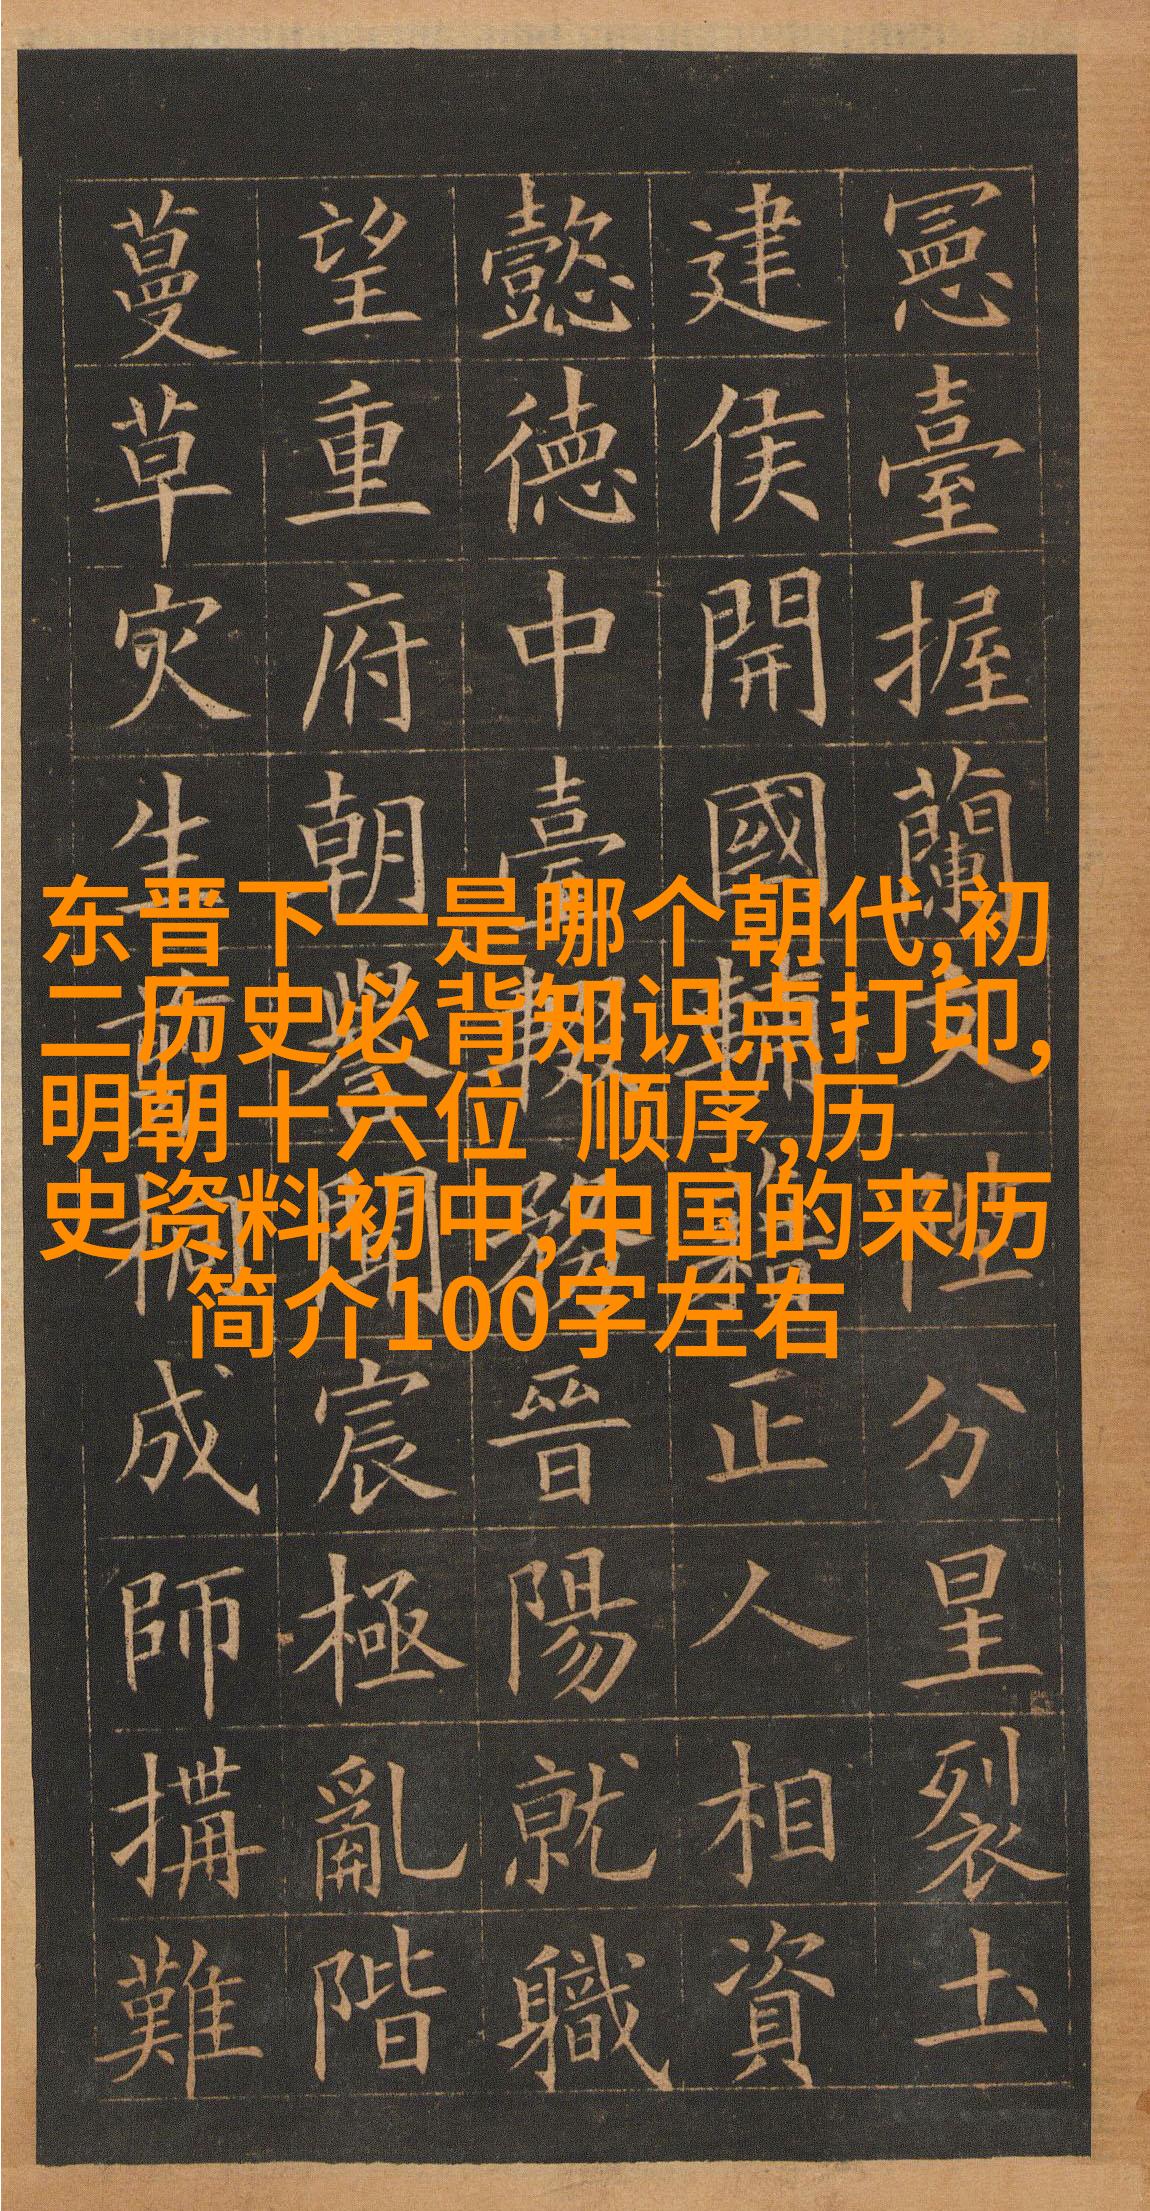 东晋下一是哪个朝代,初
二历史必背知识点打印,
明朝十六位 顺序,历
史资料初中,中国的来历
简介100字左右
憲臺握蘭文陛分星裂土
建侯開國輔藉正人相資
懿德中臺輟務晉陽就職
望重府朝譽聞宸極亂階
蔓草災生桐成師搆難